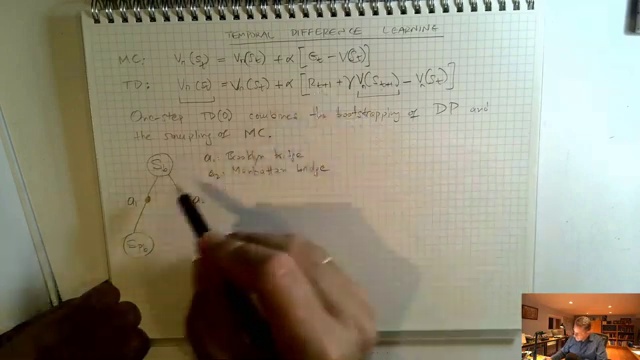 TEMPORAL DIFFERENCE LEARNING
MC: Vπ(St) = Vπ(St) + α [Gt − V(St)]
TD: Vπ(St) = Vπ(St) + α [Rt+1 + γVπ(St+1) − Vπ(St)]
One-step TD(0) combines the bootstrapping of DP and
the sampling of MC.
a1: Brooklyn bridge
S6
a2: Manhattan bridge
a1
a2